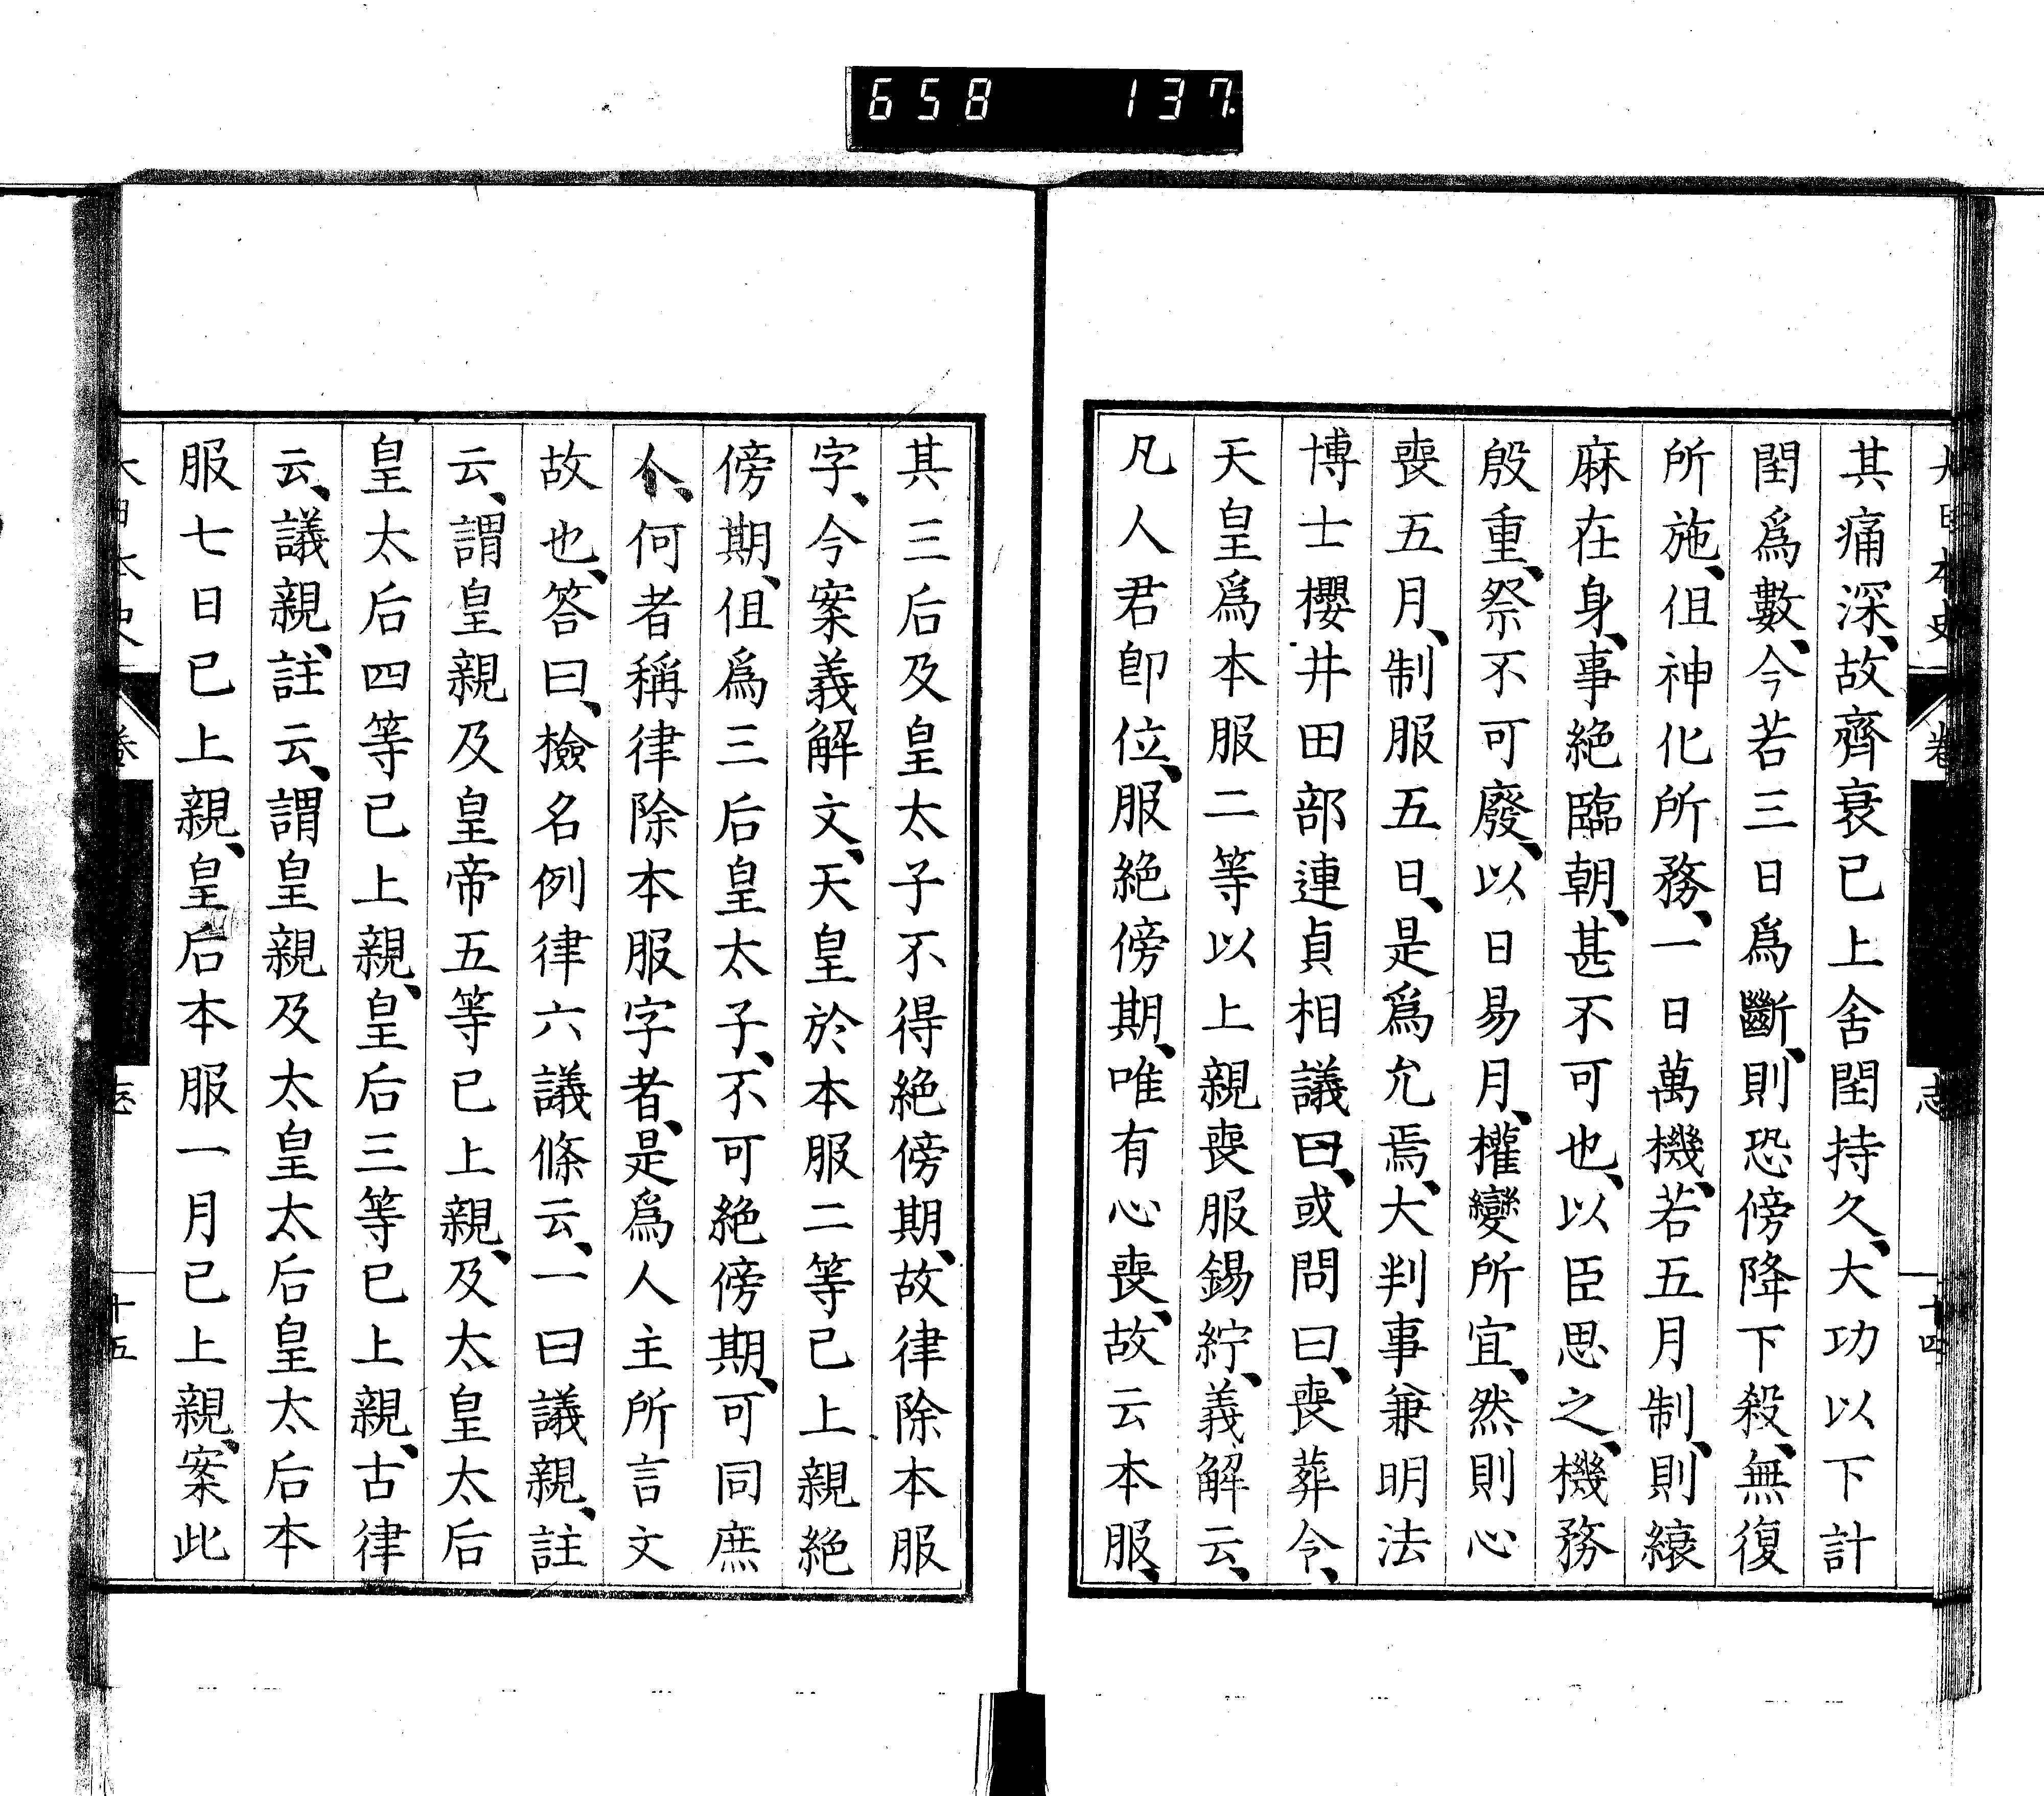 658 137
大日本史 卷 志 十四
其痛深、故齊衰已上舍閏持久、大功以下計
閏爲數、今若三日爲斷、則恐傍降下殺、無復
所施、伹神化所務、一日萬機、若五月制、則縗
麻在身、事絶臨朝、甚不可也、以臣思之、機務
殷重、祭不可廢、以日易月、權變所宜、然則心
喪五月、制服五日、是爲允焉、大判事兼明法
博士櫻井田部連貞相議曰、或問曰、喪葬令、
天皇爲本服二等以上親喪服錫紵、義解云、
凡人君卽位、服絶傍期、唯有心喪、故云本服、
其三后及皇太子不得絶傍期、故律除本服
字、今案義解文、天皇於本服二等已上親絶
傍期、伹爲三后皇太子、不可絶傍期、可同庶
人、何者稱律除本服字者、是爲人主所言文
故也、答曰、檢名例律六議條云、一曰議親、註
云、謂皇親及皇帝五等已上親、及太皇太后
皇太后四等已上親、皇后三等已上親、古律
云、議親、註云、謂皇親及太皇太后皇太后本
服七日已上親、皇后本服一月已上親、案此
大日本史 卷 志 十五